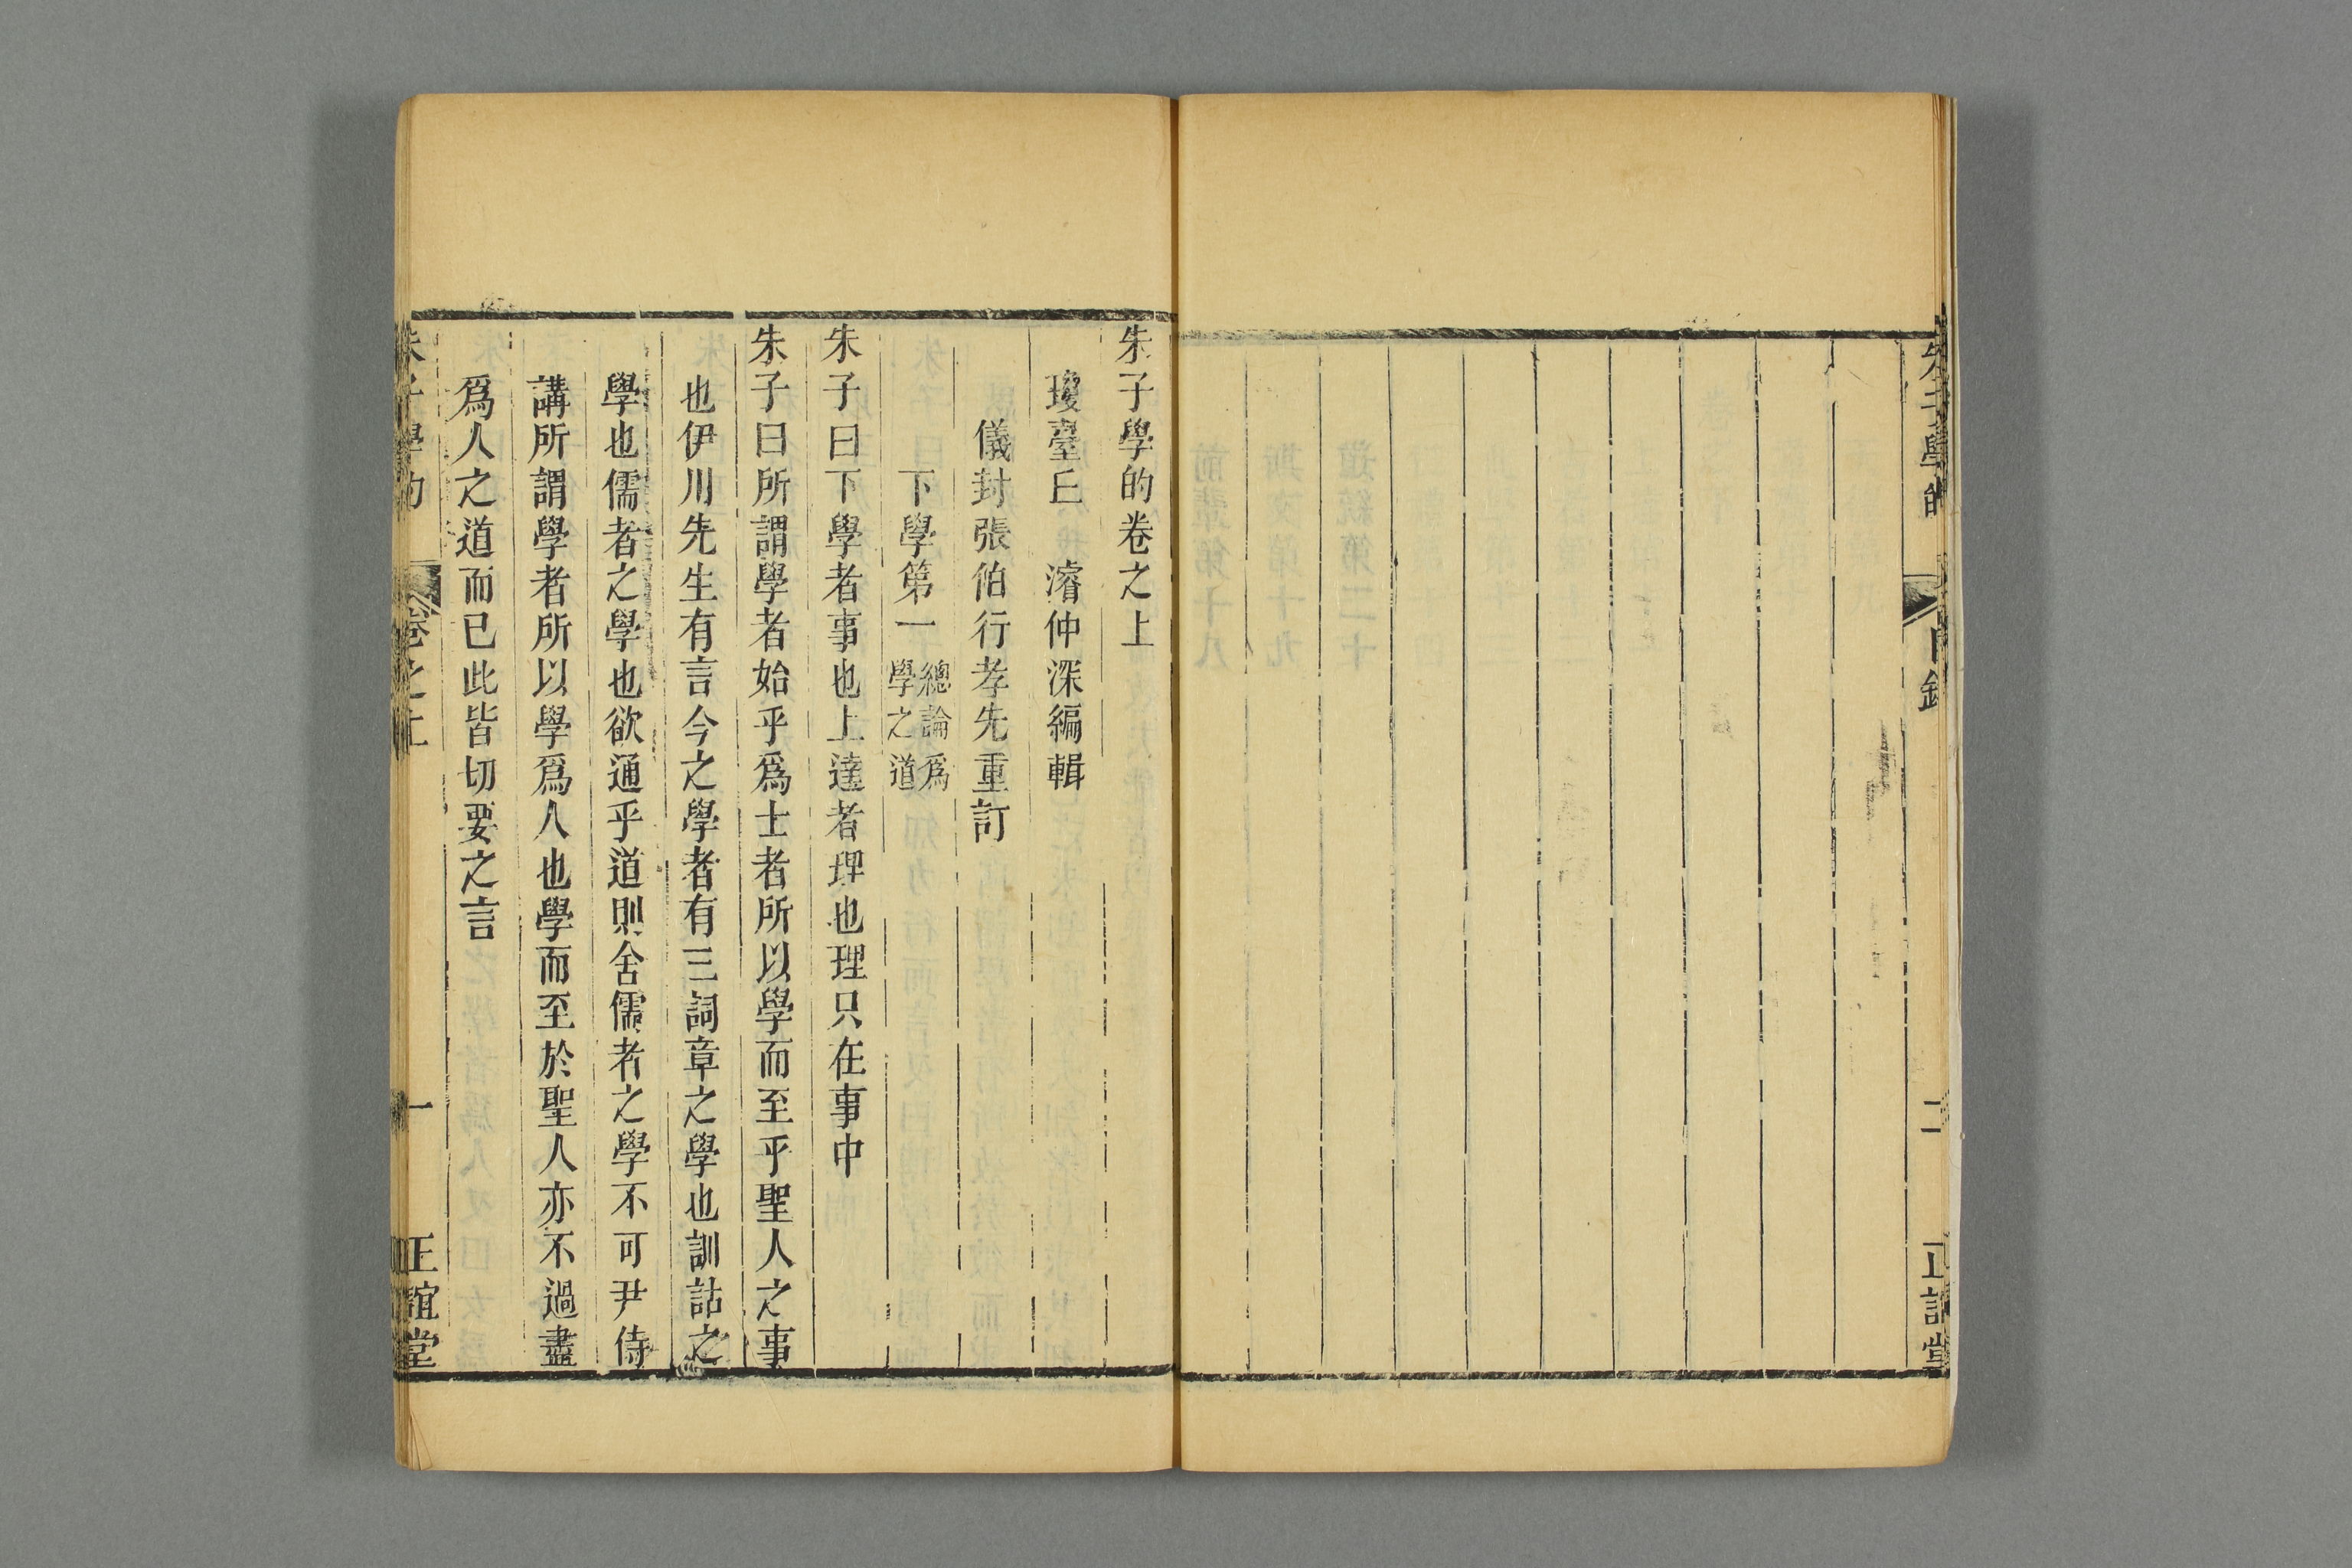 朱子學的
目錄
二
正誼堂
朱子學的卷之上
瓊臺丘　濬仲深編輯
儀封張伯行孝先重訂
下學第一
總論爲
學之道
朱子曰下學者事也上達者理也理只在事中
朱子曰所謂學者始乎爲士者所以學而至乎聖人之事
也伊川先生有言今之學者有三詞章之學也訓詁之
學也儒者之學也欲通乎道則舍儒者之學不可尹侍
講所謂學者所以學爲人也學而至於聖人亦不過盡
爲人之道而已此皆切要之言
朱子學的
卷之上
一
正誼堂